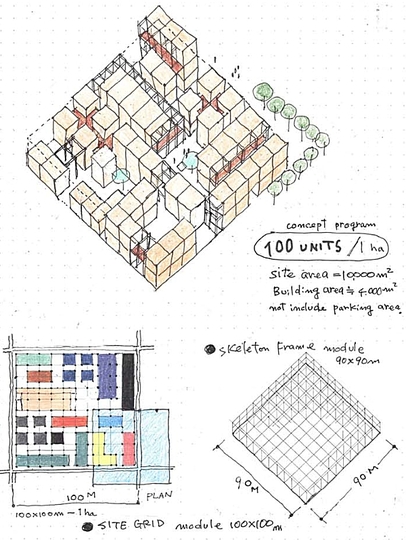 concept program
100 UNITS / 1 ha
site area = 10,000 m²
Building area ≒ 4,000 m²
not include parking area.
skeleton frame module
90x90m
90M
90M
100M
PLAN
100x100m - 1 ha
SITE GRID module 100x100m